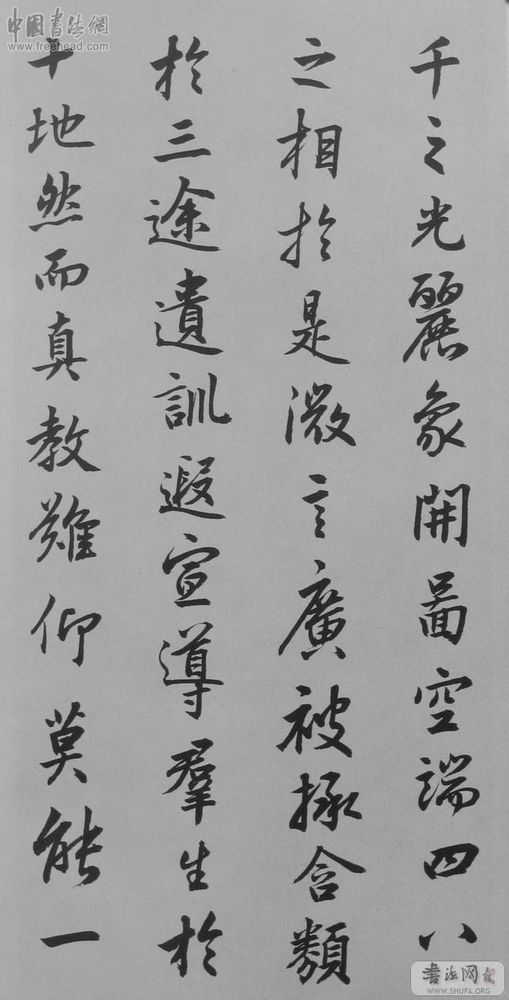 千之光麗象開啚空端四八
之相於是微言廣被拯含類
於三途遺訓遐宣導羣生於
十地然而真教難仰莫能一
中国书法網
www.freehead.com
书法网
WWW.SHUFA.ORG